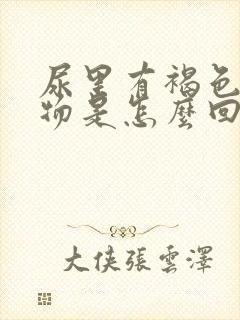 尿里有褐色
物是怎麼回
大侠張雲澤